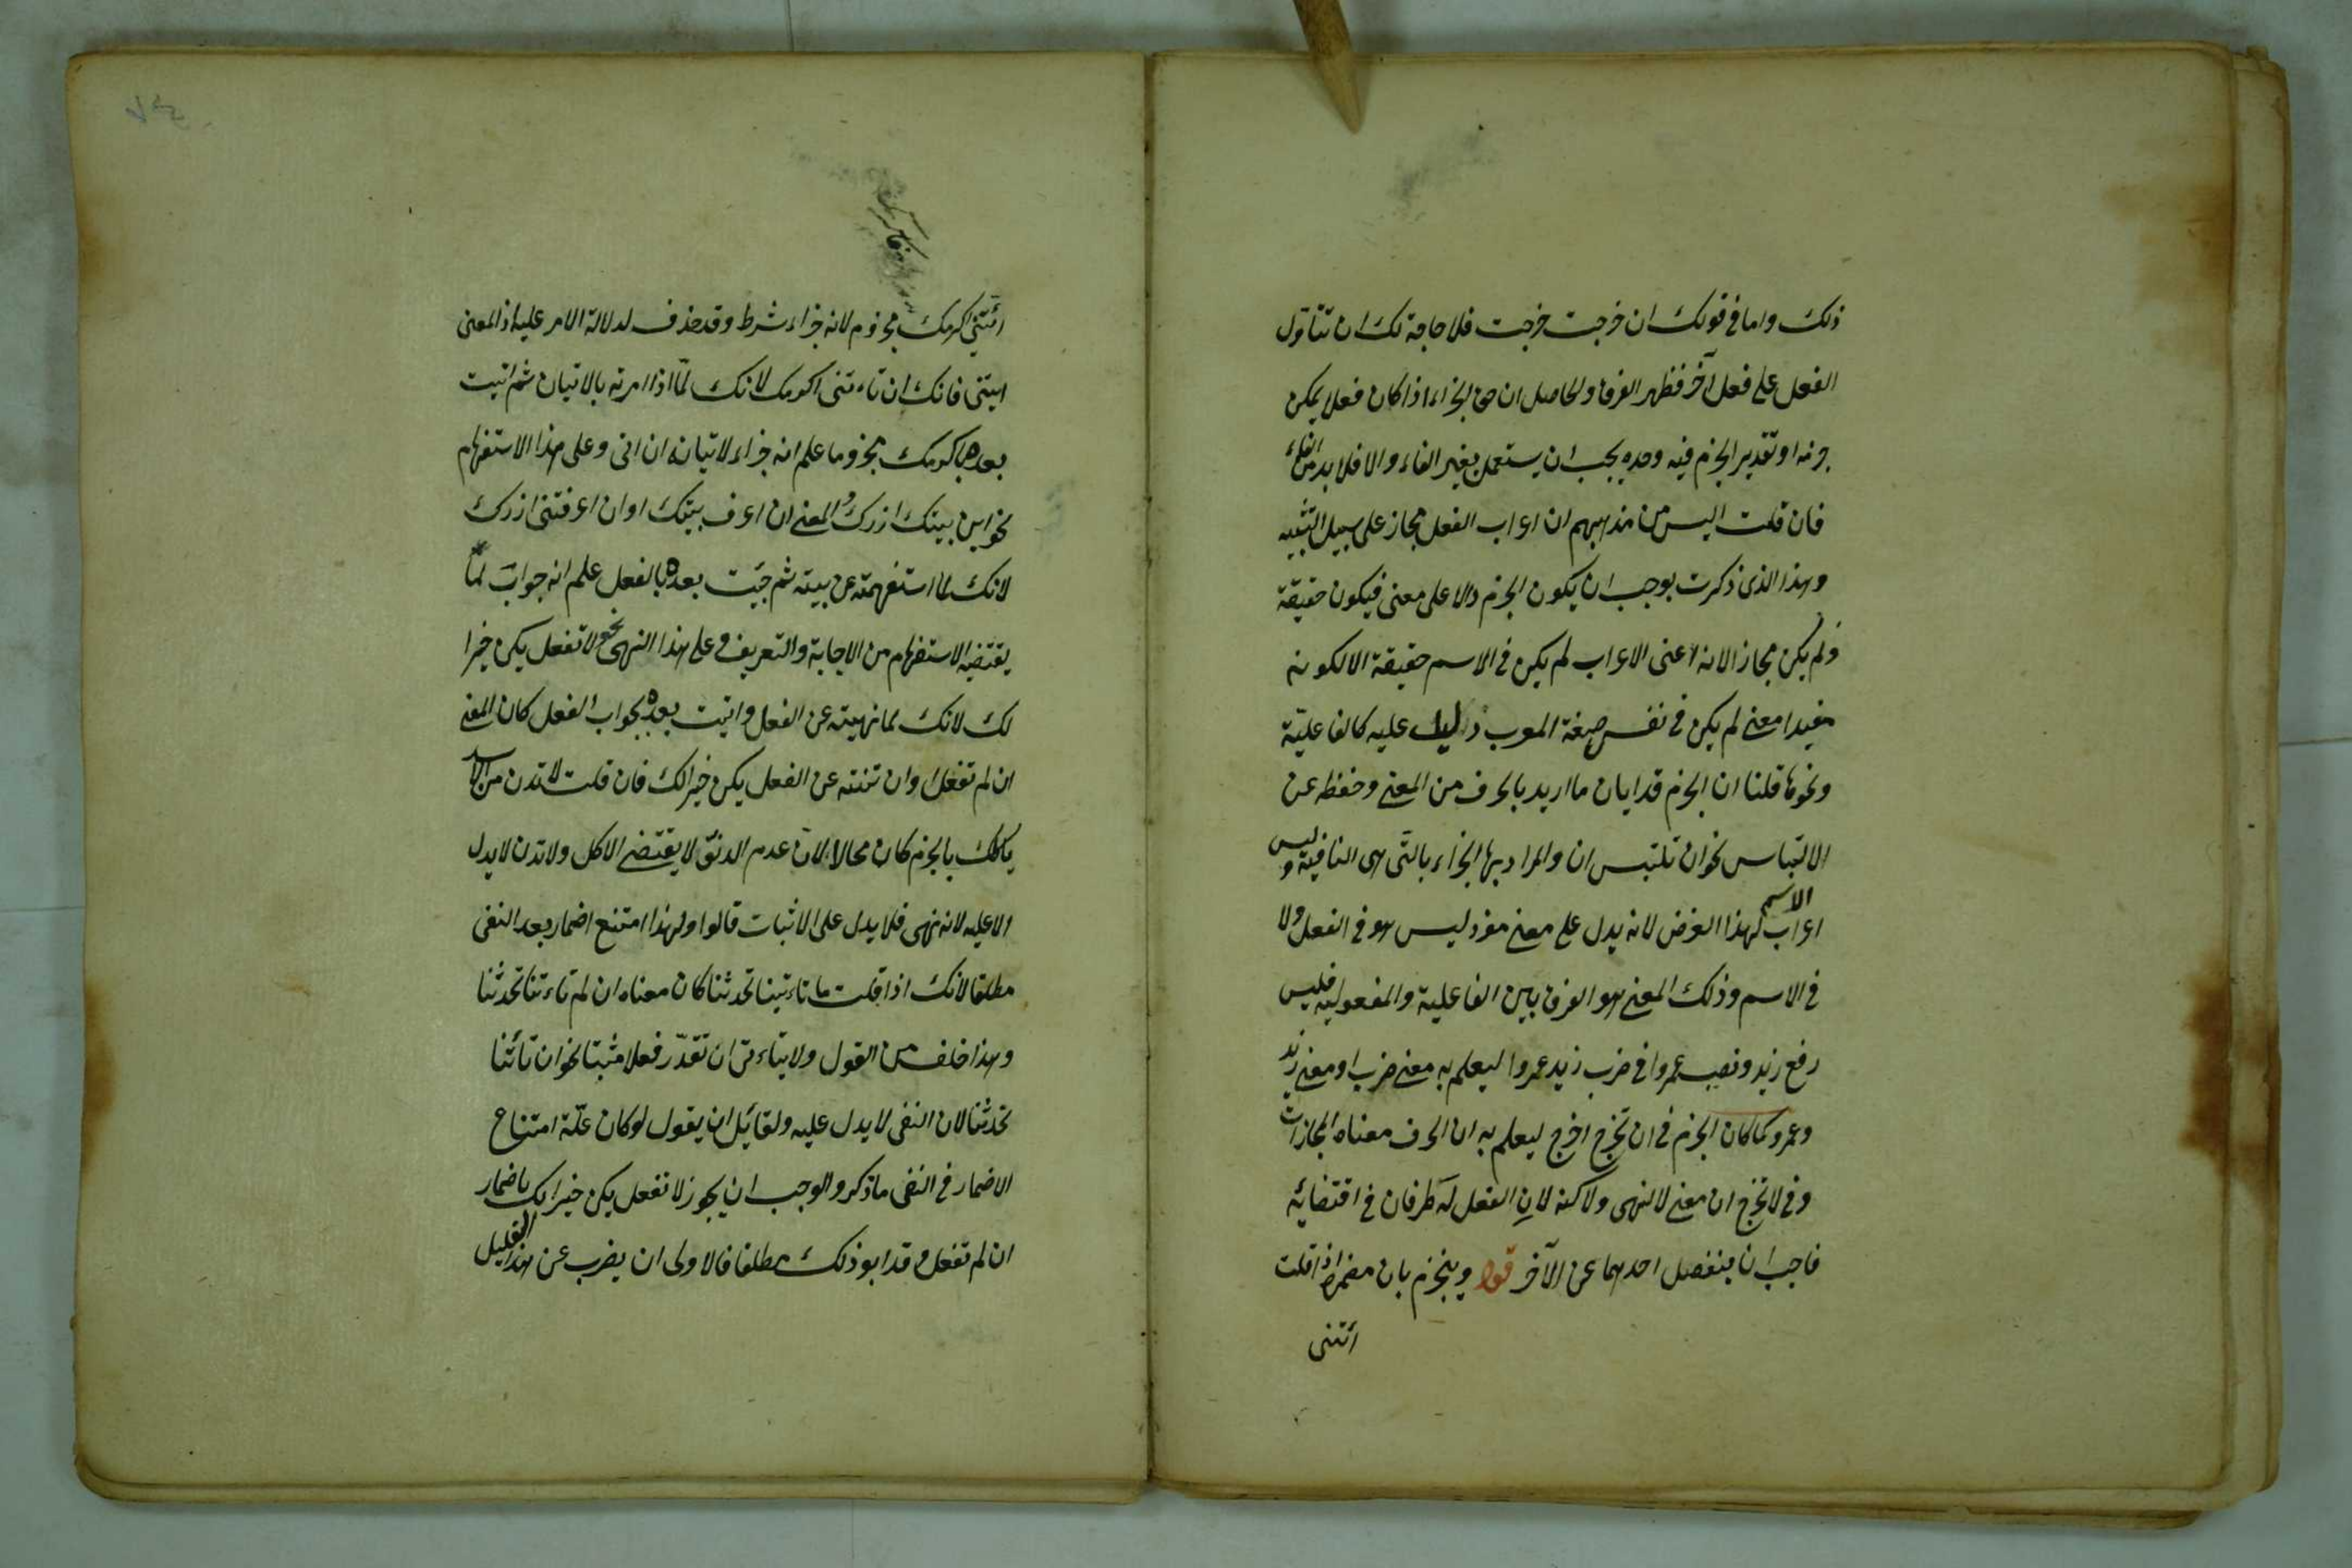 ذلك واما في قولك ان خرجت خرجت فلا حاجة لك ان تتأول
الفعل على فعل آخر فظهر الفرق والحاصل ان حق الجزاء اذا كان فعلا يمكن
جزمه او تقدير الجزم فيه وحده يجب ان يستعمل بغير الفاء والا فلا بد من الفاء
فان قلت اليس من مذهبهم ان اعراب الفعل مجاز على سبيل التشبيه
وهذا الذى ذكرت يوجب ان يكون الجزم دالا على معنى فيكون حقيقة
ولم يكن مجازا لانه اعنى الاعراب لم يكن في الاسم حقيقة الا لكونه
مفيدا معنى لم يكن في نفس صيغة المعرب دليل عليه كالفاعلية
ونحوها قلنا ان الجزم قد ابان ما اريد بالحرف من المعنى وحفظه عن
الالتباس نحو ان تلتبس ان والمراد بها الجزاء بالتى هى النافية وليس
اعراب الاسم لهذا الغرض لانه يدل على معنى مفرد ليس هو في الفعل ولا
في الاسم وذلك المعنى هو الفرق بين الفاعلية والمفعولية فليس
رفع زيد ونصب عمروا في ضرب زيد عمروا ليعلم به معنى ضرب او معنى زيد
وعمرو كما كان الجزم في ان تخرج اخرج ليعلم به ان الحرف معناه المجازات
وفي لا تخرج ان معنى لا النهى ولاكنه لان الفعل له طرفان في اقتضائه
فاجب ان ينفصل احدهما عن الآخر قوله وينجزم بان مضمرة اذا قلت
أتنى
أتتنى اكرمك مجزوم لانه جزاء شرط وقد حذف لدلالة الامر عليه اذ المعنى
ايتنى فانك ان تاءتنى اكرمك لانك لما اذا امرته بالاتيان ثم اتيت
بعده باكرمك مجزوما علم انه جزاء لاتيانه ان اتى وعلى هذا الاستفهام
نحو اين بيتك ازرك والمعنى ان اعرف بيتك او ان اعرفتنى ازرك
لانك لما استفهمته عن بيته ثم جيت بعده بالفعل علم انه جواب لما
يقتضيه الاستفهام من الاجابة والتعريف وعلى هذا النهى نحو لا تفعل يكن خيرا
لك لانك لما نهيته عن الفعل واتيت بعده بجواب الفعل كان المعنى
ان لم تفعل او ان تنته عن الفعل يكن خيرا لك فان قلت لا تدن من الاسد
ياكلك بالجزم كان محالا لان عدم الدنو لا يقتضى الاكل ولا تدن لا يدل
الا عليه لانه نهى فلا يدل على الاثبات قالوا ولهذا امتنع اضمار بعد النفى
مطلقا لانك اذا قلت ما تاءتينا تحدثنا كان معناه ان لم تاءتنا تحدثنا
وهذا خلف من القول ولا يتاءتى ان تقدّر فعلا مثبتا نحو ان تأتنا
تحدثنا لان النفى لا يدل عليه ولقائل ان يقول لو كان علّة امتناع
الاضمار في النفى ما ذكر والوجب ان يجوز لا تفعل يكن خيرا لك باضمار
ان لم تفعل وقد ابو ذلك مطلقا فالاولى ان يضرب عن هذا التعليل